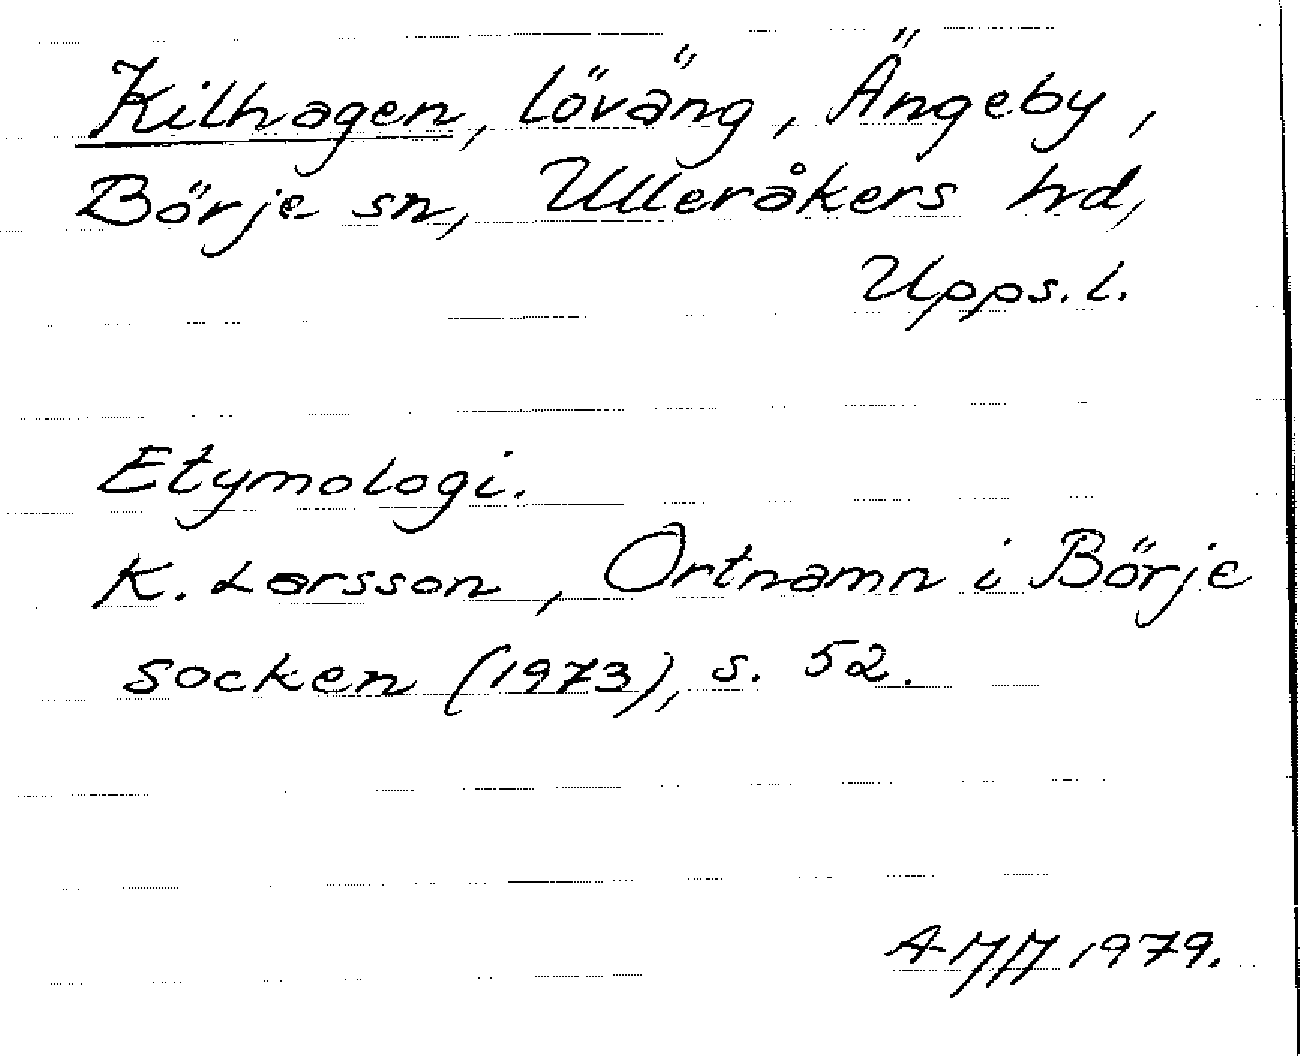 Kilhagen, löväng, Ängeby,
Börje sn, Ulleråkers hd,
Upps. l.
Etymologi.
K. Larsson, Ortnamn i Börje
socken (1973), s. 52.
1979.